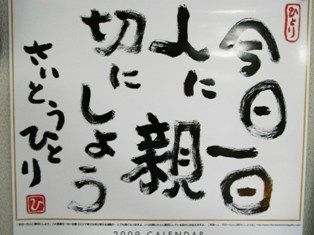 ひとり
今日一日
人に親
切にしよう
さいとうひと
り
ひ
2009 CALENDAR